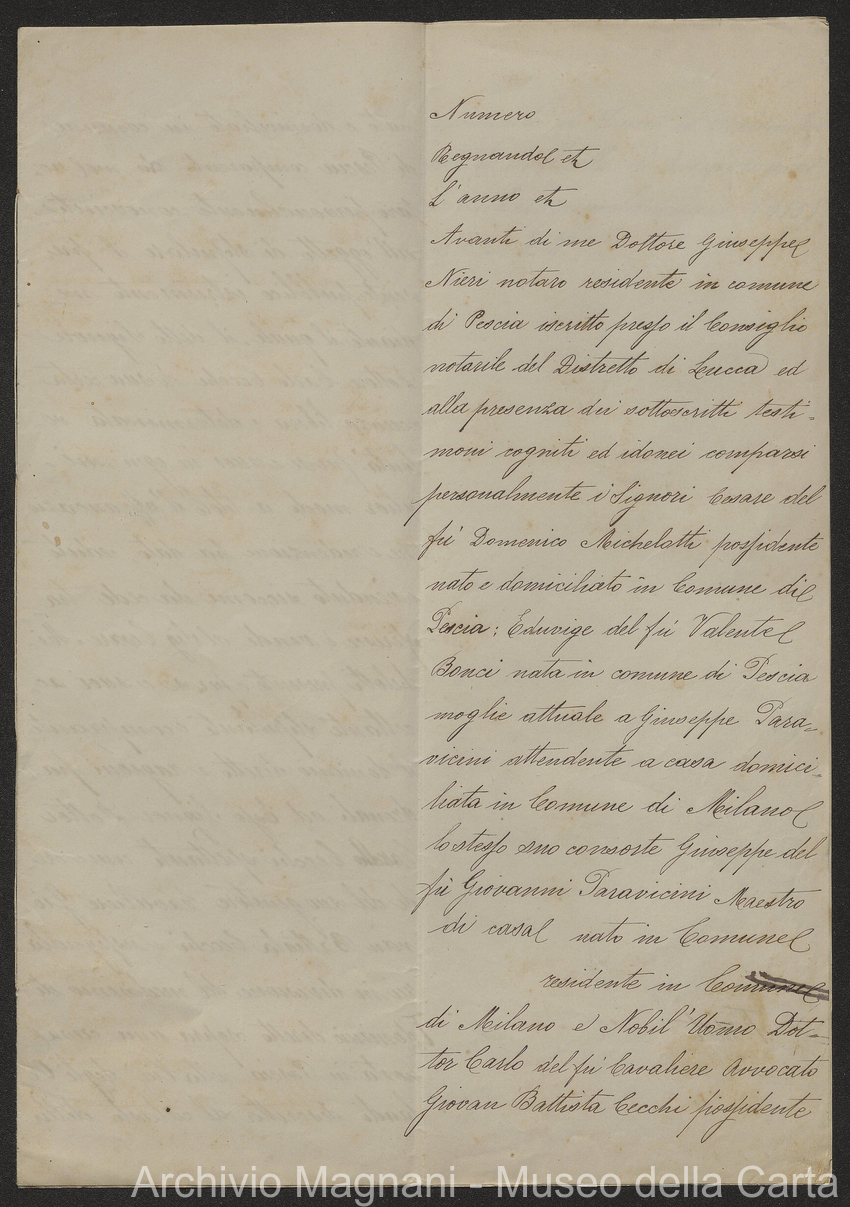 Numero
Regnando etc
L'anno etc
Avanti di me Dottore Giuseppe
Nieri notaro residente in comune
di Pescia iscritto presso il Consiglio
notarile del Distretto di Lucca ed
alla presenza dei sottoscritti testi-
moni cogniti ed idonei comparsi
personalmente i Signori Cesare del
fu Domenico Michelotti possidente
nato e domiciliato in Comune di
Pescia; Eduvige del fu Valente
Bonci nata in comune di Pescia
moglie attuale a Giuseppe Para-
vicini attendente a casa domici-
liata in Comune di Milano
lo stesso suo consorte Giuseppe del
fu Giovanni Paravicini Maestro
di casa nato in Comune
residente in Comune
di Milano e Nobil'Uomo Dot-
tor Carlo del fu Cavaliere Avvocato
Giovan Battista Cecchi possidente
Archivio Magnani - Museo della Carta